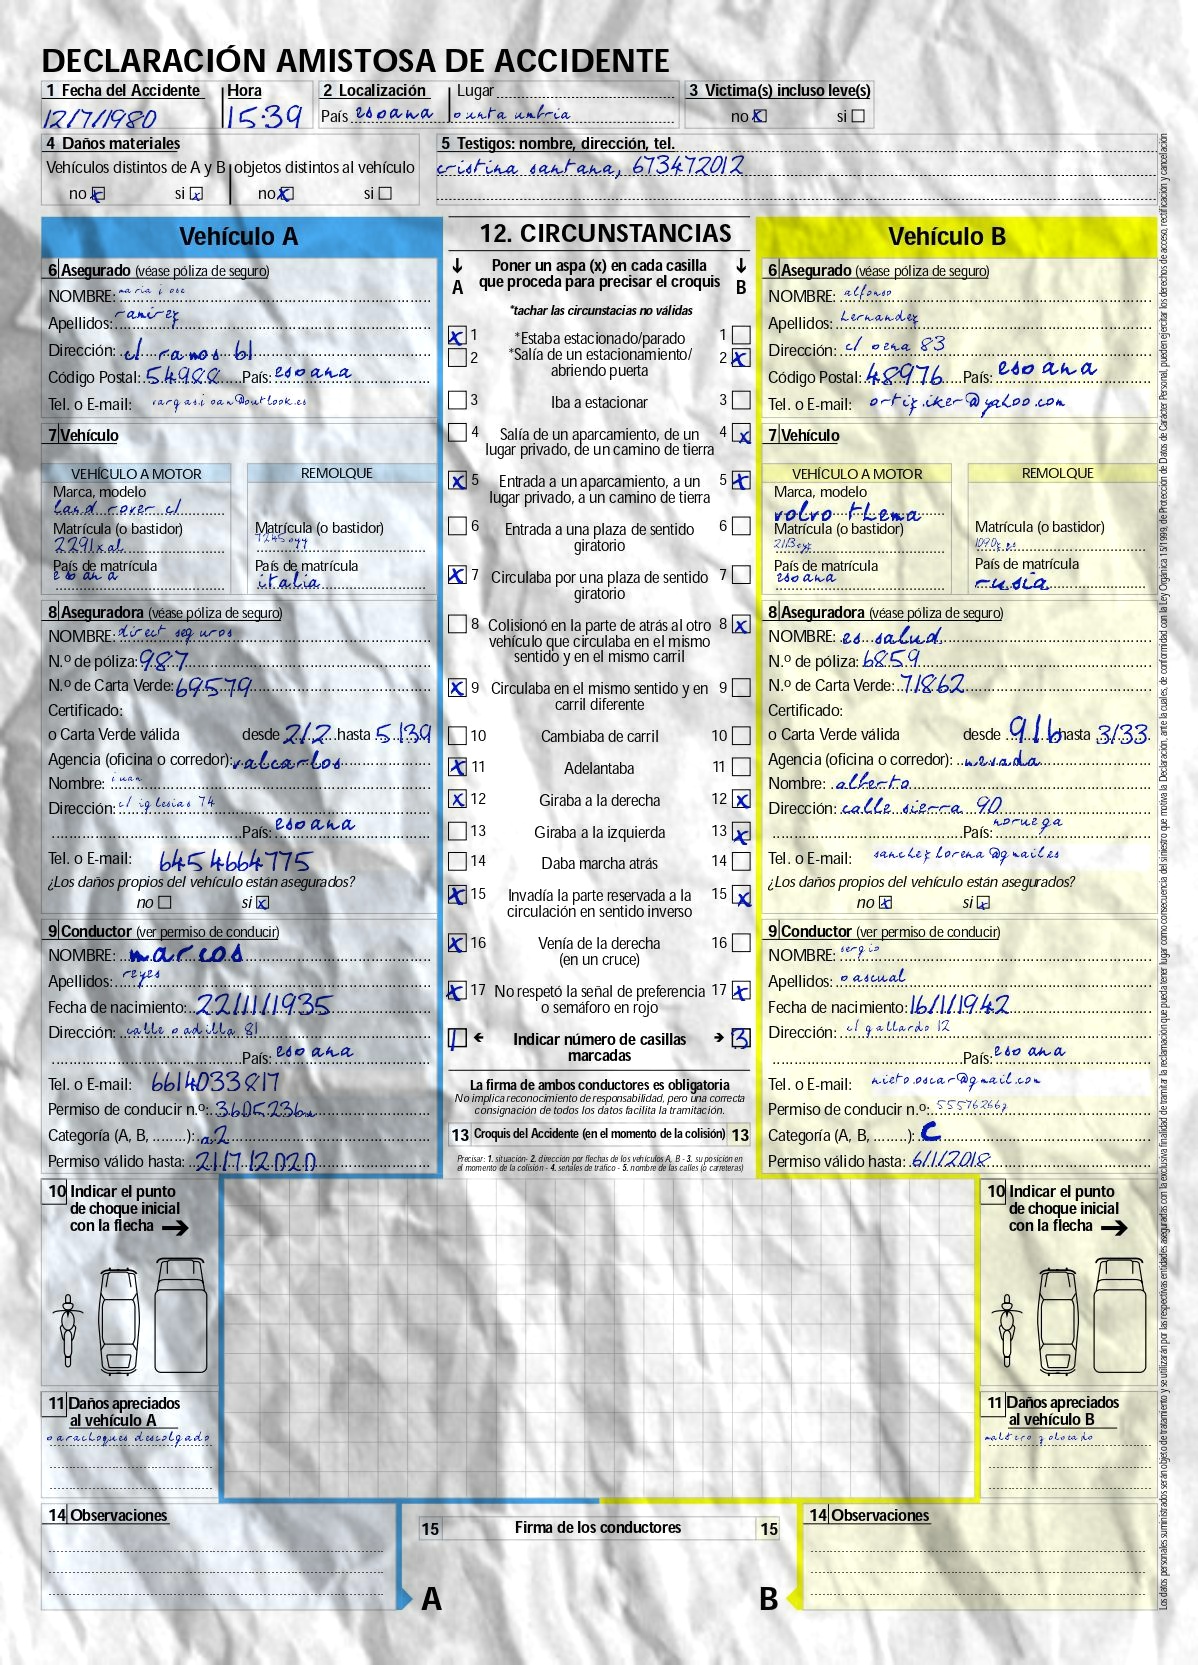 DECLARACIÓN AMISTOSA DE ACCIDENTE
1 Fecha del Accidente Hora 2 Localización Lugar 3 Victima(s) incluso leve(s)
12/7/1980 15:39 País esoana ounta umbria no x si
4 Daños materiales 5 Testigos: nombre, dirección, tel.
Vehículos distintos de A y B objetos distintos al vehículo cristina santana, 673472012
no x si x no x si
Vehículo A
6 Asegurado (véase póliza de seguro)
NOMBRE: maria j ose
Apellidos: ramirez
Dirección: c/ ramos 61
Código Postal: 54988 País: esoana
Tel. o E-mail: vargasjoan@outlook.es
7 Vehículo
VEHÍCULO A MOTOR REMOLQUE
Marca, modelo
land rover cl
Matrícula (o bastidor) Matrícula (o bastidor)
2291xal 7245oyy
País de matrícula País de matrícula
esoana italia
8 Aseguradora (véase póliza de seguro)
NOMBRE: direct seguros
N.º de póliza: 987
N.º de Carta Verde: 69579
Certificado:
o Carta Verde válida desde 2/2 hasta 5/39
Agencia (oficina o corredor): valcarlos
Nombre: juan
Dirección: c/ iglesias 74
País: esoana
Tel. o E-mail: 6454664775
¿Los daños propios del vehículo están asegurados?
no si x
9 Conductor (ver permiso de conducir)
NOMBRE: marcos
Apellidos: reyes
Fecha de nacimiento: 22/11/1935
Dirección: calle oadilla 81
País: esoana
Tel. o E-mail: 6614033817
Permiso de conducir n.º: 3605236
Categoría (A, B, ........): a2
Permiso válido hasta: 21/7/2020
12. CIRCUNSTANCIAS
Poner un aspa (x) en cada casilla
A que proceda para precisar el croquis B
*tachar las circunstacias no válidas
x 1 *Estaba estacionado/parado 1
2 *Salía de un estacionamiento/ 2 x
abriendo puerta
3 Iba a estacionar 3
4 Salía de un aparcamiento, de un 4 x
lugar privado, de un camino de tierra
x 5 Entrada a un aparcamiento, a un 5 x
lugar privado, a un camino de tierra
6 Entrada a una plaza de sentido 6
giratorio
x 7 Circulaba por una plaza de sentido 7
giratorio
8 Colisionó en la parte de atrás al otro 8 x
vehículo que circulaba en el mismo
sentido y en el mismo carril
x 9 Circulaba en el mismo sentido y en 9
carril diferente
10 Cambiaba de carril 10
x 11 Adelantaba 11
x 12 Giraba a la derecha 12 x
13 Giraba a la izquierda 13 x
14 Daba marcha atrás 14
x 15 Invadía la parte reservada a la 15 x
circulación en sentido inverso
x 16 Venía de la derecha 16
(en un cruce)
x 17 No respetó la señal de preferencia 17 x
o semáforo en rojo
1 Indicar número de casillas 3
marcadas
La firma de ambos conductores es obligatoria
No implica reconocimiento de responsabilidad, pero una correcta
consignación de todos los datos facilita la tramitación.
13 Croquis del Accidente (en el momento de la colisión) 13
Precisar: 1. situación- 2. dirección por flechas de los vehículos A, B - 3. su posición en
el momento de la colisión - 4. señales de tráfico - 5. nombre de las calles (o carreteras)
Vehículo B
6 Asegurado (véase póliza de seguro)
NOMBRE: alfonso
Apellidos: hernandez
Dirección: c/ oena 83
Código Postal: 48976 País: esoana
Tel. o E-mail: ortiz.iker@yahoo.com
7 Vehículo
VEHÍCULO A MOTOR REMOLQUE
Marca, modelo
volvo thema
Matrícula (o bastidor) Matrícula (o bastidor)
País de matrícula País de matrícula
esoana rusia
8 Aseguradora (véase póliza de seguro)
NOMBRE: es salud
N.º de póliza: 6859
N.º de Carta Verde: 71862
Certificado:
o Carta Verde válida desde 9/6 hasta 3/33
Agencia (oficina o corredor): nevada
Nombre: alberto
Dirección: calle sierra 90
País: noruega
Tel. o E-mail: sanchezlorena@gmail.es
¿Los daños propios del vehículo están asegurados?
no x si x
9 Conductor (ver permiso de conducir)
NOMBRE: sergio
Apellidos: oascual
Fecha de nacimiento: 16/1/1942
Dirección: c/ gallardo 12
País: esoana
Tel. o E-mail: nieto.oscar@gmail.com
Permiso de conducir n.º:
Categoría (A, B, ........): c
Permiso válido hasta: 6/1/2018
10 Indicar el punto
de choque inicial
con la flecha
11 Daños apreciados
al vehículo A
oarachoques descolgado
10 Indicar el punto
de choque inicial
con la flecha
11 Daños apreciados
al vehículo B
14 Observaciones
15 Firma de los conductores 15
A B
14 Observaciones
Los datos personales suministrados serán objeto de tratamiento y se utilizarán por las respectivas entidades aseguradas con la exclusiva finalidad de tramitar la reclamación que pueda tener lugar como consecuencia del siniestro que motiva la Declaración, ante la cuales, de conformidad con la Ley Orgánica 15/1999, de Protección de Datos de Carácter Personal, pueden ejercitar los derechos de acceso, rectificación y cancelación